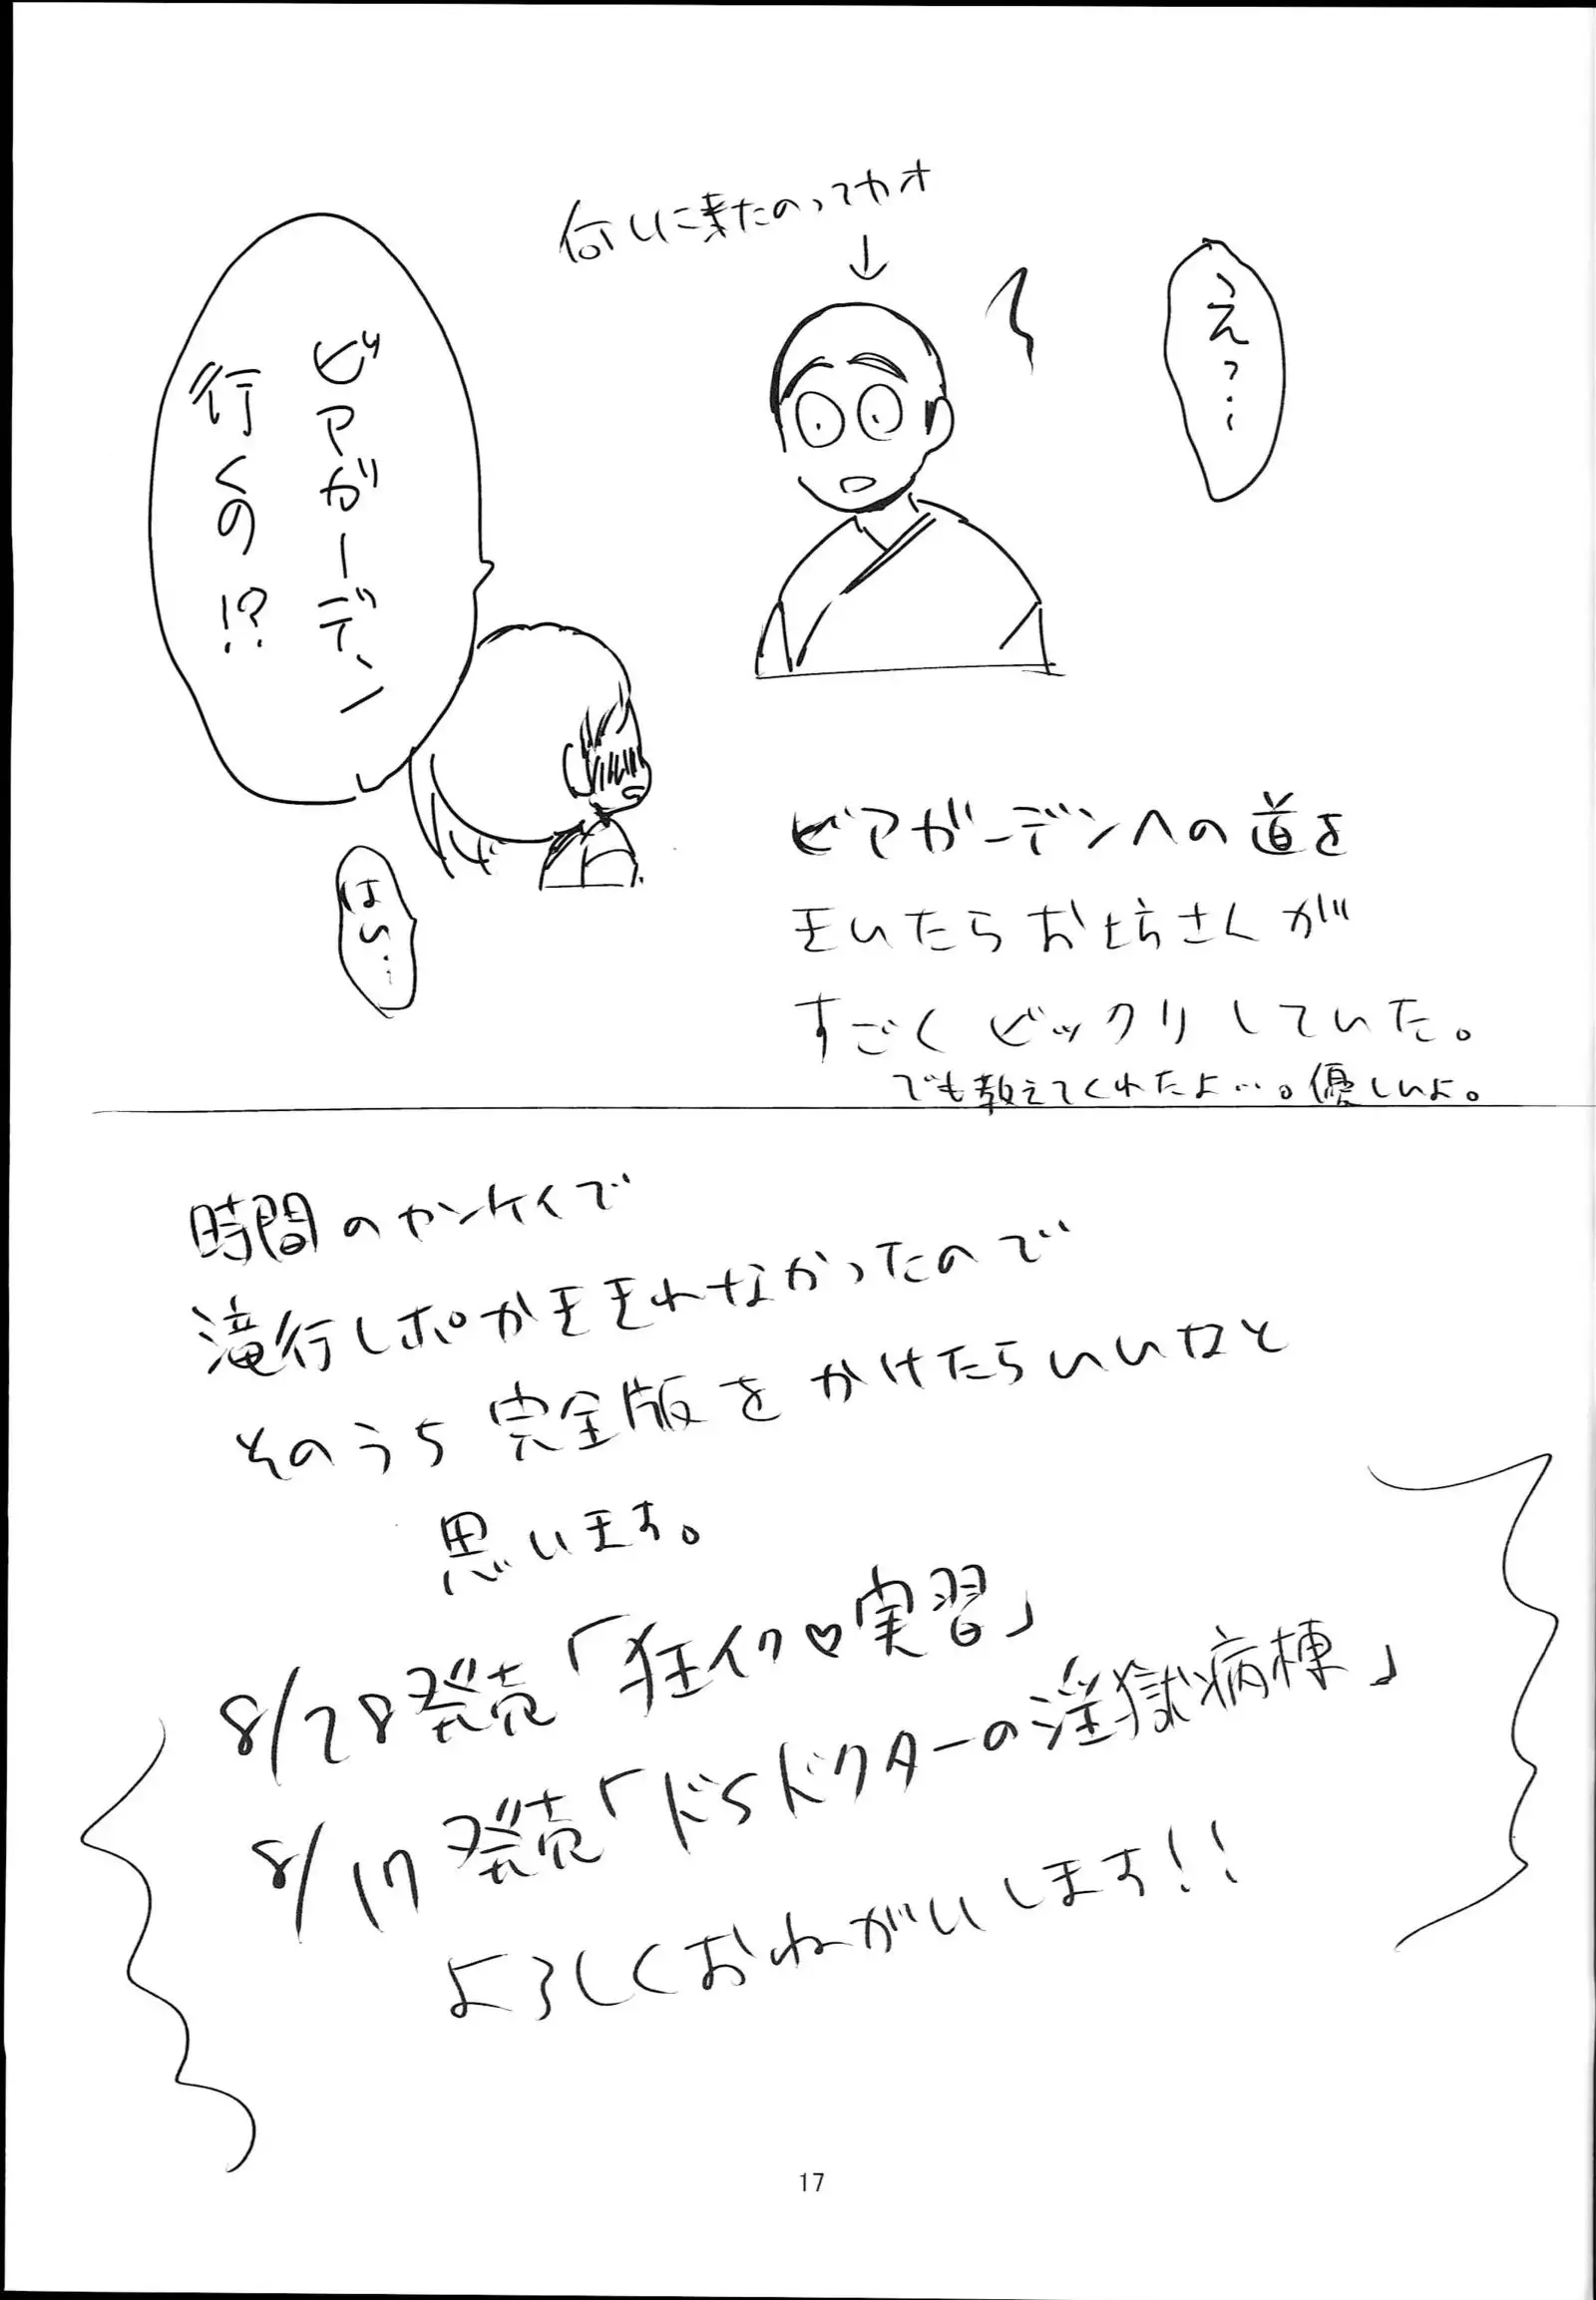 え?…
何しに来たのってカオ
↓
ビアガーデン
行くの!?
はい…
ビアガーデンへの道を
きいたらお坊さんが
すごくビックリしていた。
でも教えてくれたよ…。優しいよ。
時間のカンケイで
滝行レポかききれなかったので
そのうち完全版をかけたらいいなと
思います。
8/28発売「狂イク♡実習」
8/17発売「ドSドクターの淫獄病棟」
よろしくおねがいします!!
17